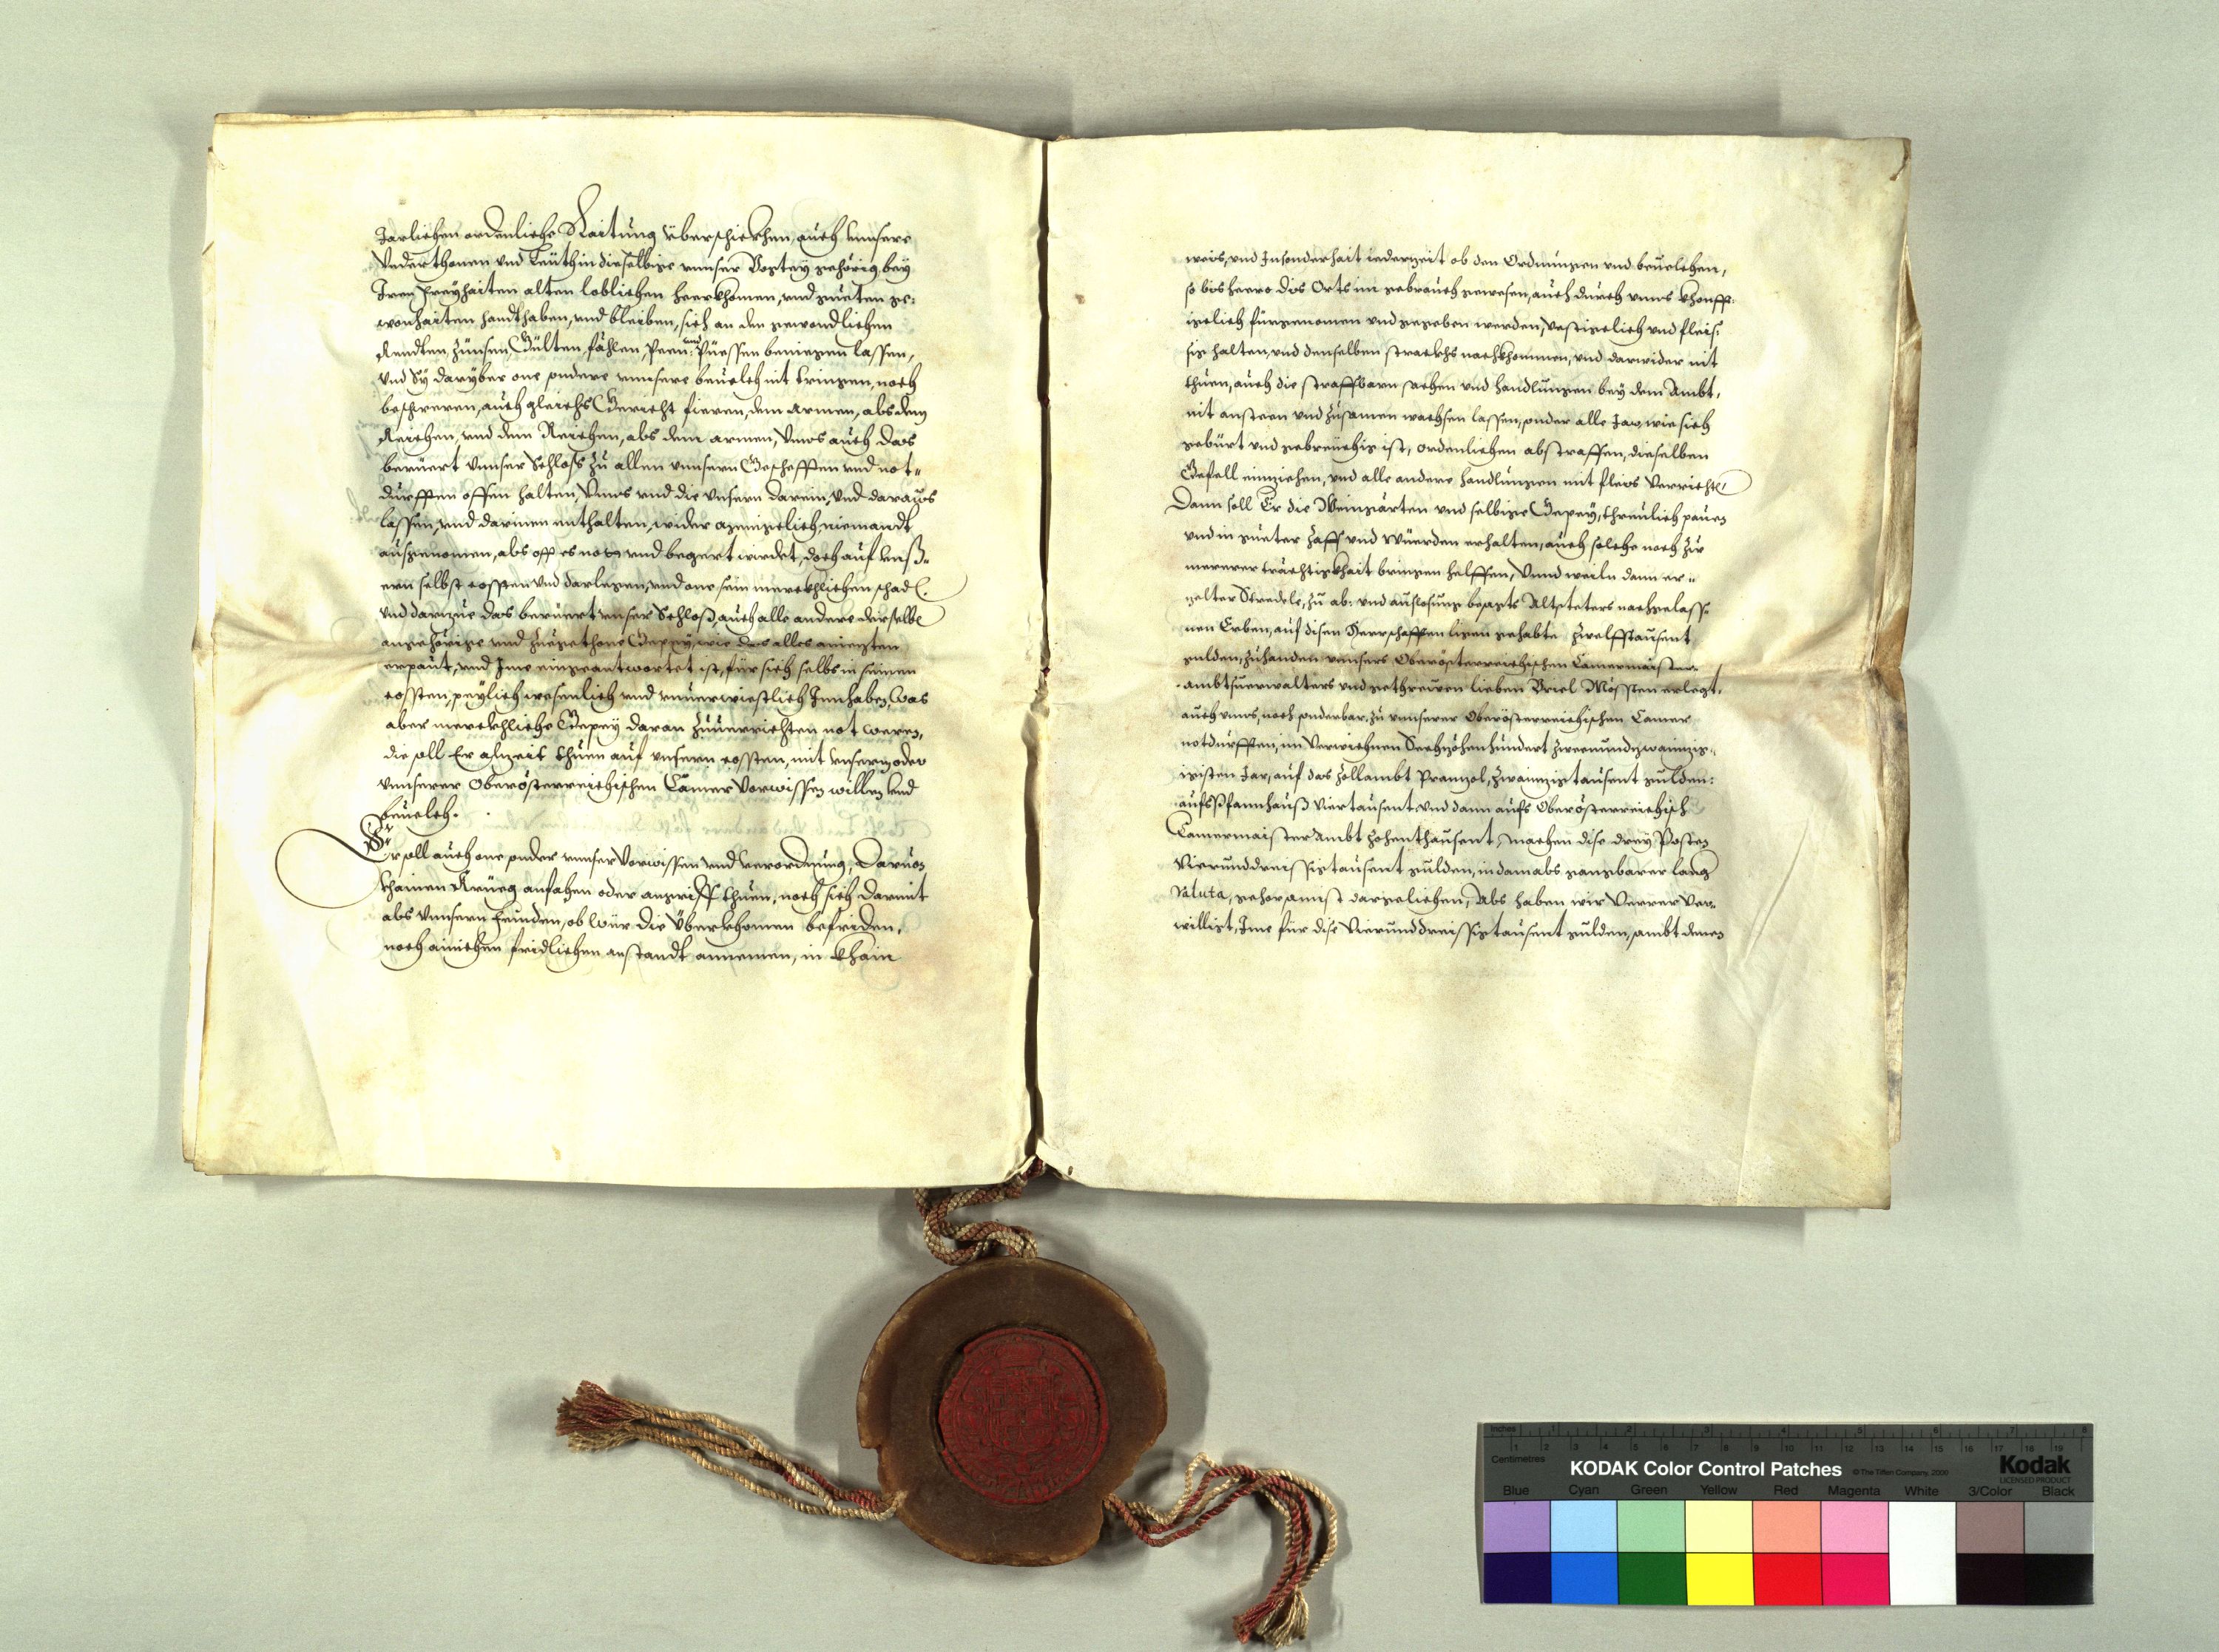 Jarlichen ordenliche Raitung überschickhen, auch vnnsere
Vnderthonen vnd Leüth in dieselbige vnnser Vogtey gehörig bey
Iren Freyhaiten alten loblichen heerkhomen, vnd gueten ge-
wonhaiten handthaben, vnd bleiben, sich an den gewondlichen
Rendten, Zünsen, Gülten, fählen, Peen vnd Püessen beniegen lassen,
vnd Sy darüber one sondere vnnsere beuelch nit tringen, noch
beschweren, auch gleichs Gericht fieren, dem Armen, als dem
Reichen, vnd dem Reichen, als dem armen, Vnns auch das
berüert vnnser Schloss zu allen vnnsern Gescheften vnd not-
durfften offen halten, Vnns vnd die vnsern darein, vnd daraus
lassen, vnd darinnen enthalten, wider aigenigelich, niemandt
ausgenomen, als offt es not vnd begert wirdet, doch auf vnß-
ern selbst cossten vnd darlegen, vnd one sein merckhlichen schad.
vnd darzue das berüert vnser Schloß, auch alle andere derselbe
angehörige vnd zuegethone Gepey, wie das alles am iegsten
erpaut, vnd Ime eingeantwortet ist, für sich selbs in seinen
cossten, peylich wesenlich vnd vnuerwiestlich Innhaben, Was
aber merckhliche Gepey daran zuuerrichten not weren,
die soll Er alzeit thuen auf vnsern cossten, mit vnserm oder
vnnserer Oberösterreichischen Camer Vorwissen willen vnd
beuelch.
Er soll auch one sonder vnnser Vorwissen vnd verordnung, Daruon
khainen Krueg anfahen oder angriff thuen, noch sich darmit
als vnnsern feinden, ob wür die überkhomen befriden,
noch ainichen fridlichen anstandt annemen, in khain
weis, vnd Insonderhait iederzeit ob den Ordnungen vnd beuelchen,
so bisheero dis Orts im gebrauch gewesen, auch durch vnns khonff-
tigelich fürgenomen vnd gegeben werden, vestigelich vnd fleis-
sig halten, vnd denselben strackhs nachkhommen, vnd darwider nit
thuen, auch die straffbarn sachen vnd handlungen bey dem Ambt,
nit ansteen vnd zusamen wachsen lassen, sonder alle Jar, wie sich
gebürt vnd gebreuchig ist, ordenlichen abstraffen, dieselben
Gefell einziehen, vnd alle andere handlungen mit fleis Verrichten
Dann soll Er die Weingärten vnd selbige Gepey, threulich pauen
vnd in gueter hafft vnd Würden erhalten, auch solche noch zu
mererer trächtigkhait bringen helffen, Vnnd weiln dann er-
zelter Stredele, zu ab: vnd auslosung besagts Altsteters nachgelasse-
nen Erben, auf disen Herrschafften ligen gehabte zwelfftausent
gulden, zuhanden vnnsers Oberösterreichischen Camermaister-
ambtsuerwalters vnd gethreuen lieben Briel Mössten erlegt,
auch vnns, noch sonderbar, zu vnnserer Oberösterreichischen Camer
notdurfften, im Verwichnen Sechzöhenhundert zwenundzwainzig-
igisten Jar, auf das Zollambt Pranzol, zwainzigtausent gulden:
aufs Pfannhauß viertausent vnd dann aufs Oberösterreichisch
Camermaister Ambt zehenthausent, machen dise drey Posten
vierunddreissigtausent gulden, in damals ganngbarer lang
Valuta, gehorsamist dargelichen, Als haben wir verrer Ver-
willigt, Ime für dise Vierunddreissigtausent gulden, sambt denen
Inches
Centimetres
KODAK Color Control Patches © The Tiffen Company, 2000
Kodak
LICENSED PRODUCT
Blue Cyan Green Yellow Red Magenta White 3/Color Black